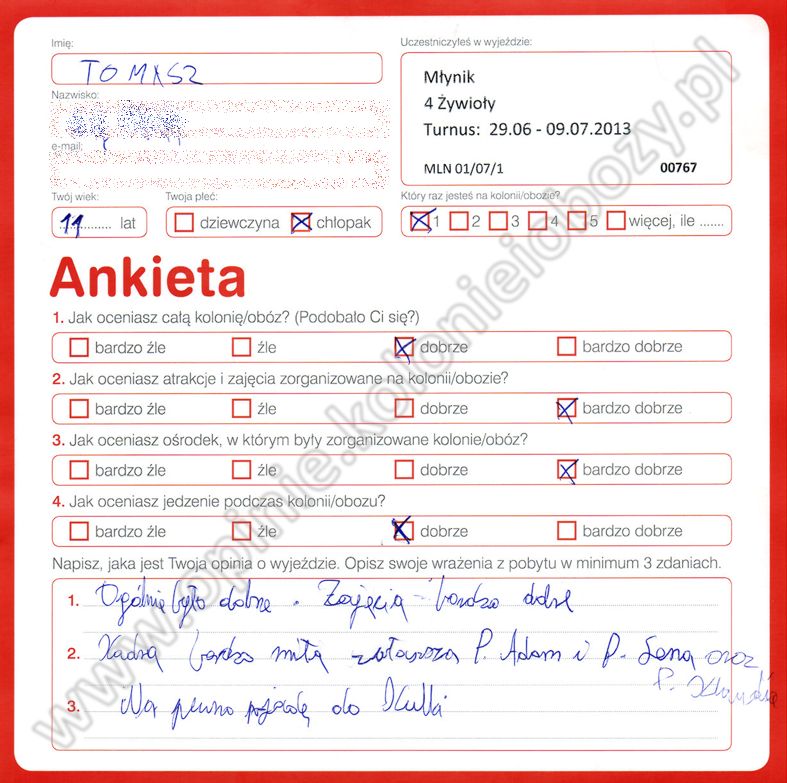 Imię:
Uczestniczyłeś w wyjeździe:
TOMASZ
Młynik
4 Żywioły
Turnus: 29.06 - 09.07.2013
MLN 01/07/1 00767
Nazwisko:
e-mail:
Twój wiek:
Twoja płeć:
Który raz jesteś na kolonii/obozie?
11 lat
dziewczyna chłopak
1 2 3 4 5 więcej, ile .......
Ankieta
1. Jak oceniasz całą kolonię/obóz? (Podobało Ci się?)
bardzo źle źle dobrze bardzo dobrze
2. Jak oceniasz atrakcje i zajęcia zorganizowane na kolonii/obozie?
bardzo źle źle dobrze bardzo dobrze
3. Jak oceniasz ośrodek, w którym były zorganizowane kolonie/obóz?
bardzo źle źle dobrze bardzo dobrze
4. Jak oceniasz jedzenie podczas kolonii/obozu?
bardzo źle źle dobrze bardzo dobrze
Napisz, jaka jest Twoja opinia o wyjeździe. Opisz swoje wrażenia z pobytu w minimum 3 zdaniach.
1. Ogólnie było dobrze. Zajęcia - bardzo dobre
2. Kadra bardzo miła zwłaszcza P. Adam i P. Lena oraz
P. Klaudia
3. Na pewno pojadę do
www.opinie.kolonieiobozy.pl